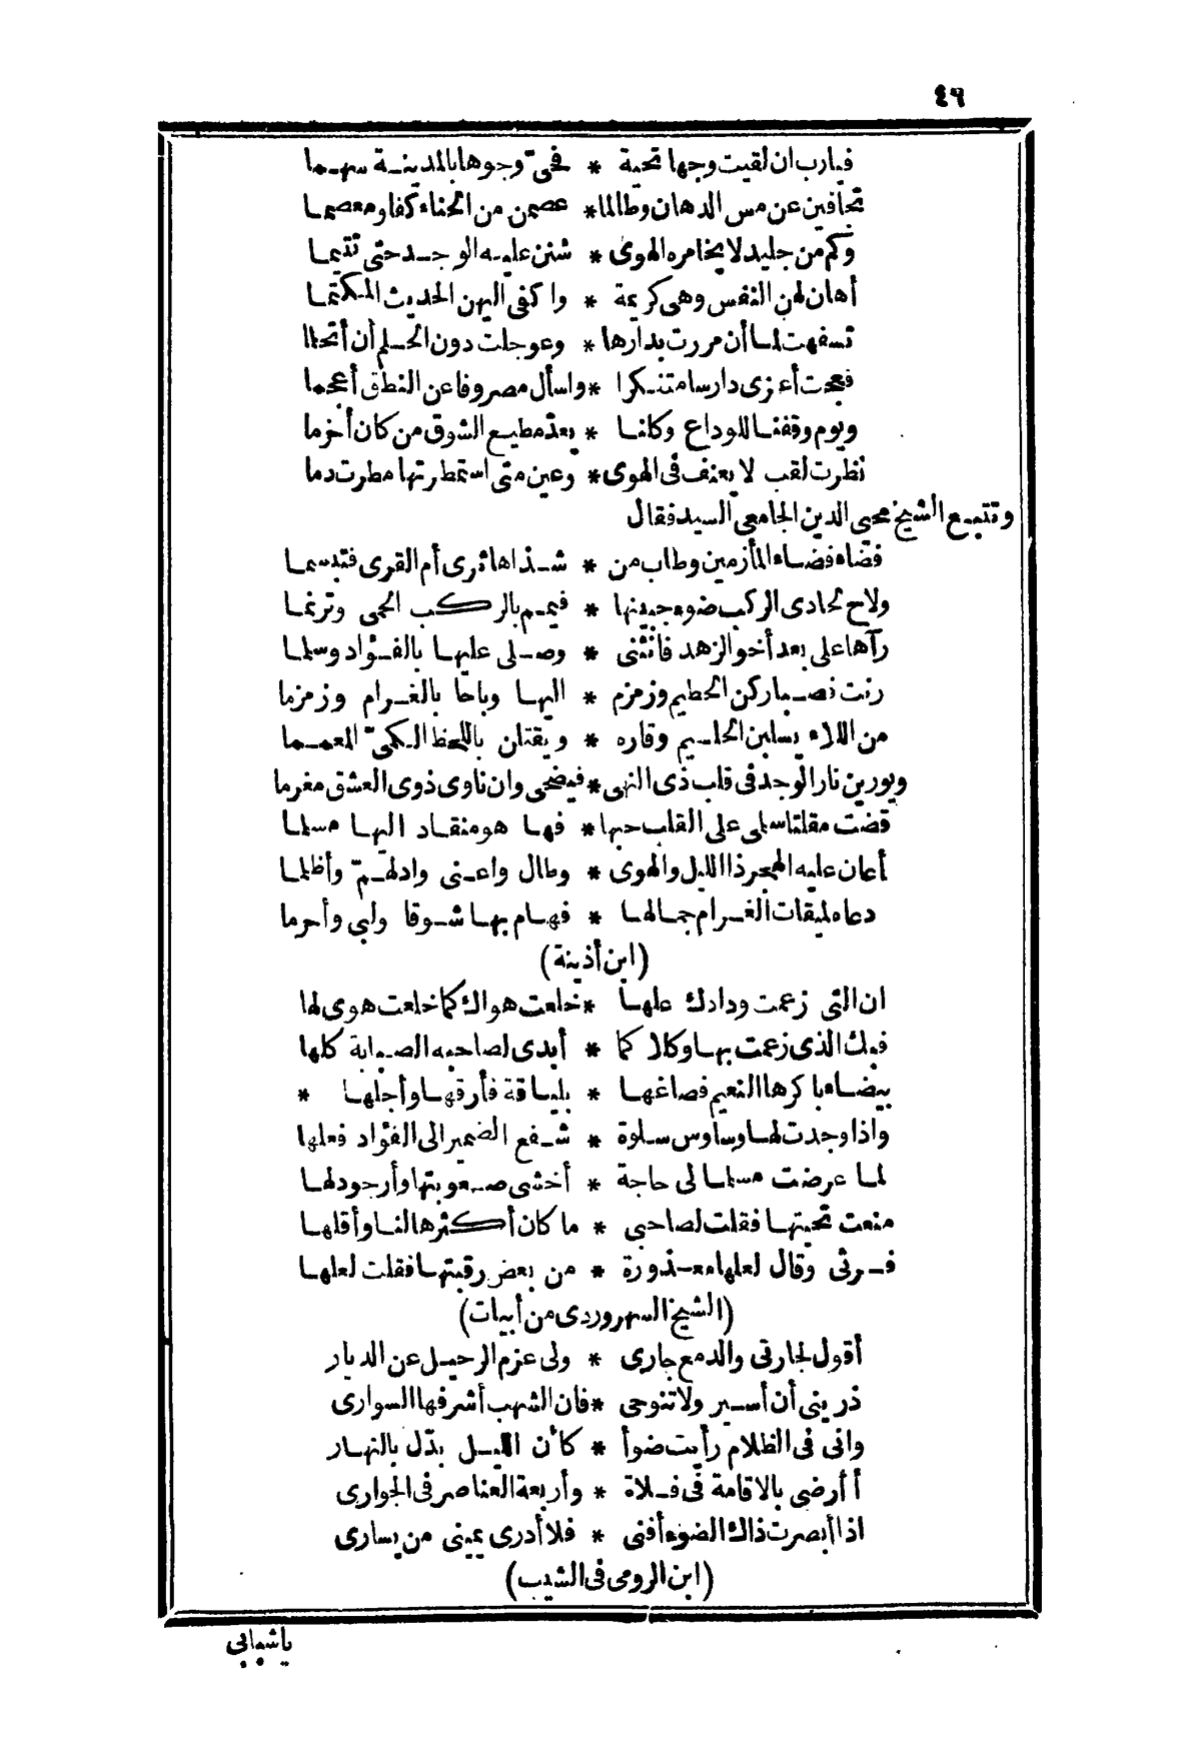 ٤٦
فيارب ان لقيت وجها تحية * فحىّ وجوها بالمدينة سهما
تجافين عن مس الدهان وطالما * عصمن من الحناء كفا ومعصما
وكم من جليد لا يخامره الهوى * شنن عليه الوجد حتى تتيما
أهان لهن النفس وهى كريمة * وا كفى اليهن الحديث المكتما
تسفهت لما أن مررت بدارها * وعوجلت دون الحلم أن أتحلما
فعجت أعزى دارسا متنكرا * واسأل مصروفا عن النطق أعجما
ويوم وقفنا للوداع وكلنا * يعد مطيع الشوق من كان أخرما
نظرت لقلب لا يعنف فى الهوى * وعين متى استمطرتها مطرت دما
وتتبع الشيخ محيى الدين الجامعى السيد فقال
فضاء فضاء المأزمين وطاب من * شذاها ثرى أم القرى فتبسما
ولاح لحادى الركب ضوء جبينها * فيمم بالركب الحمى وترنما
رآها على بعد أخو الزهد فانثنى * وصلى عليها بالفؤاد وسلما
رنت نصبا ركن الحطيم وزمزم * اليها وباحا بالغرام وزمزما
من اللاء يسلبن الحليم وقاره * ويقتلن باللحظ الكمىّ المعمما
ويورين نار الوجد فى قلب ذى النهى * فيضحى وان ناوى ذوى العشق مغرما
قضت مقلتا سلمى على القلب حبها * فها هو منقاد اليها مسلما
أعان عليه الهجر ذا الليل والهوى * وطال واعنى وادلهمّ وأظلما
دعاه لميقات الغرام جمالها * فهام بها شوقا ولبى وأحرما
(ابن أذينة)
ان التى زعمت ودادك علها * خلعت هواك كما خلعت هوى لها
فبك الذى زعمت بها وكلا كما * أبدى لصاحبه الصبابة كلها
بيضاء باكرها النعيم فصاغها * بلباقة فأرقها وأجلها *
واذا وجدت لها وساوس سلوة * شفع الضمير الى الفؤاد فعلها
لما عرضت مسلما لى حاجة * أخشى صعوبتها وأرجو دلها
منعت تحيتها فقلت لصاحبى * ما كان أكثرها لنا وأقلها
فرثى وقال لعلها معذورة * من بعض رقبتها فقلت لعلها
(الشيخ السهروردى من أبيات)
أقول لجارتى والدمع جارى * ولى عزم الرحيل عن الديار
ذرينى أن أسير ولا تنوحى * فان الشهب أشرفها السوارى
وانى فى الظلام رأيت ضوأ * كأن الليل بدّل بالنهار
أ أرضى بالاقامة فى فلاة * وأربعة العناصر فى الجوارى
اذا أبصرت ذاك الضوء أفنى * فلا أدرى يمينى من يسارى
(ابن الرومى فى الشيب)
ياشبابى